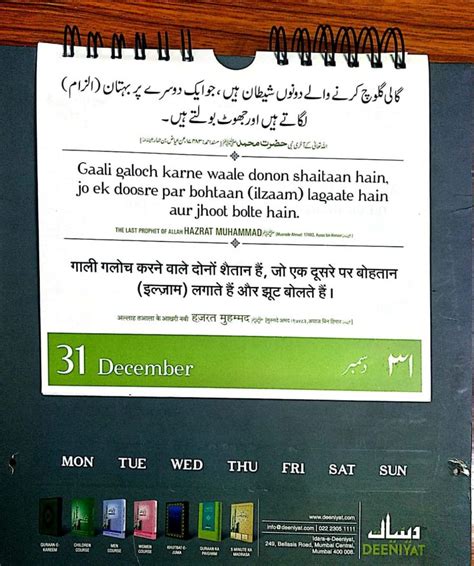 گالی گلوچ کرنے والے دونوں شیطان ہیں، جو ایک دوسرے پر بہتان (الزام)
لگاتے ہیں اور جھوٹ بولتے ہیں۔
اللہ تعالیٰ کے آخری نبی حضرت محمد ﷺ
Gaali galoch karne waale donon shaitaan hain,
jo ek doosre par bohtaan (ilzaam) lagaate hain
aur jhoot bolte hain.
THE LAST PROPHET OF ALLAH HAZRAT MUHAMMAD ﷺ
गाली गलोच करने वाले दोनों शैतान हैं, जो एक दूसरे पर बोहतान
(इल्ज़ाम) लगाते हैं और झूट बोलते हैं।
अल्लाह तआला के आखरी नबी हज़रत मुहम्मद ﷺ
31 December ۳۱ دسمبر
MON TUE WED THU FRI SAT SUN
QURAAN-E-KAREEM
CHILDREN COURSE
MEN COURSE
WOMEN COURSE
KHUTBAT-E-JUMA
QURAAN KA PAIGHAM
5 MINUTE KA MADRASA
www.deeniyat.com
info@deeniyat.com | 022 2305 1111
Idara-e-Deeniyat,
249, Bellasis Road, Mumbai Central,
Mumbai 400 008.
DEENIYAT